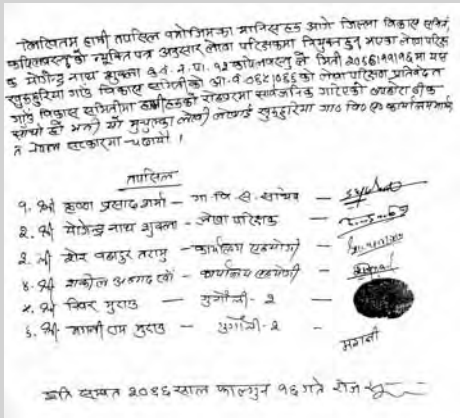 लिखितम् हामी तपसिल बमोजिमका मानिसहरु आगे जिल्ला विकास समिति,
कपिलवस्तु को नियुक्ति पत्र अनुसार लेखा परिक्षकमा नियुक्त हुनु भएका लेखा परिक्ष
क योगेन्द्र नाथ शुक्ला कपिलवस्तु ले मिति २०६६।११।१६ मा यस
खुरुहुरिया गाउँ विकास समितीको आ.व. ०६५।०६६ को लेखा परिक्षण प्रतिवेदन
गाउँ विकास समितीमा हामीहरुको रोहवरमा सार्वजनिक गरिएको व्यहोरा ठीक
साँचो हो भनी यो मुचुल्का लेखी खुरुहुरिया गा० वि० स० कार्यालय मार्फत
त नेपाल सरकारमा चढायौं ।
तपसिल
१. श्री कृष्ण प्रसाद शर्मा – गा. वि. स. सचिव –
२. श्री योगेन्द्र नाथ शुक्ला – लेखा परिक्षक –
३. श्री शेर बहादुर – कार्यालय सहयोगी –
४. श्री अहमद खाँ – कार्यालय सहयोगी –
५. श्री मुराउ – गुगौली - २ –
६. श्री मगनी राम मुराउ – गुगौली - २ – मगनी
इति सम्वत २०६६ साल फाल्गुन १६ गते रोज